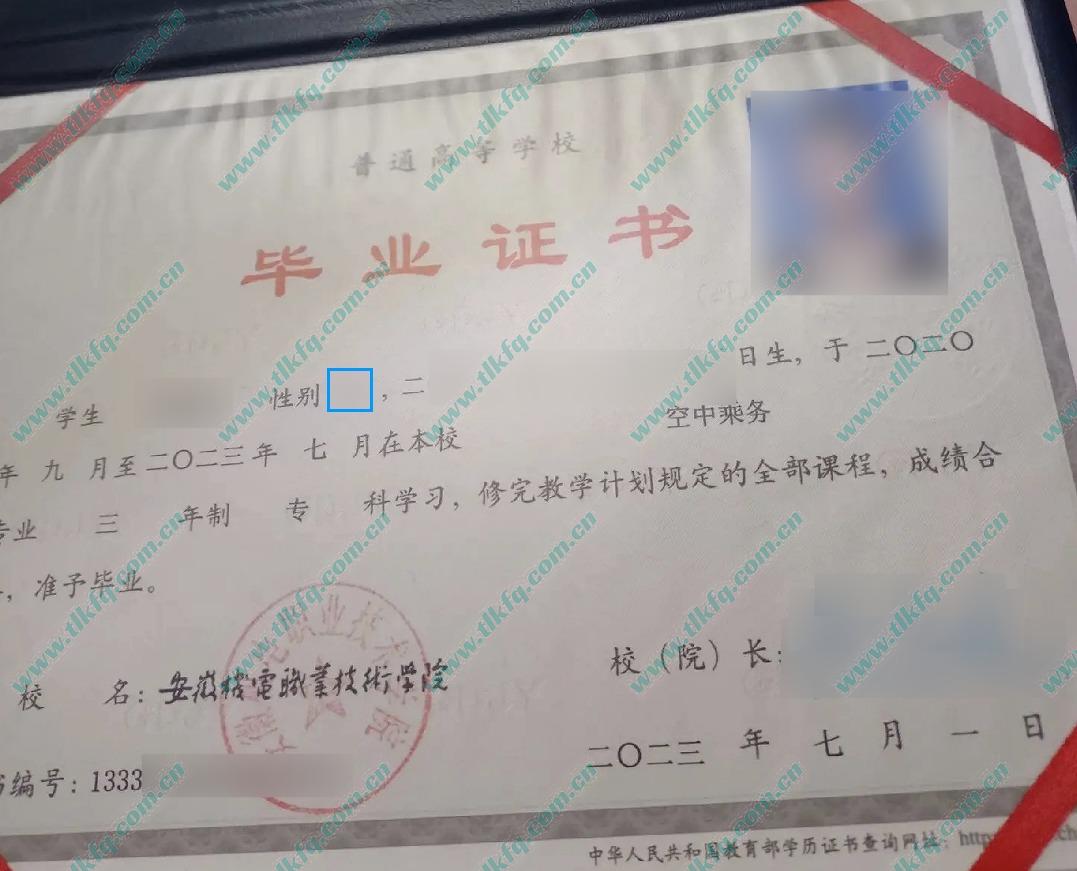 普通高等学校
毕业证书
学生 性别 ，二 日生，于 二〇二〇
年 九 月至二〇二三年 七 月在本校 空中乘务
专业 三 年制 专 科学习，修完教学计划规定的全部课程，成绩合
，准予毕业。
校 名：安徽機電職業技術学院 校（院）长：
二〇二三 年 七 月 一 日
书编号：1333
中华人民共和国教育部学历证书查询网址：http
www.tlkfq.com.cn